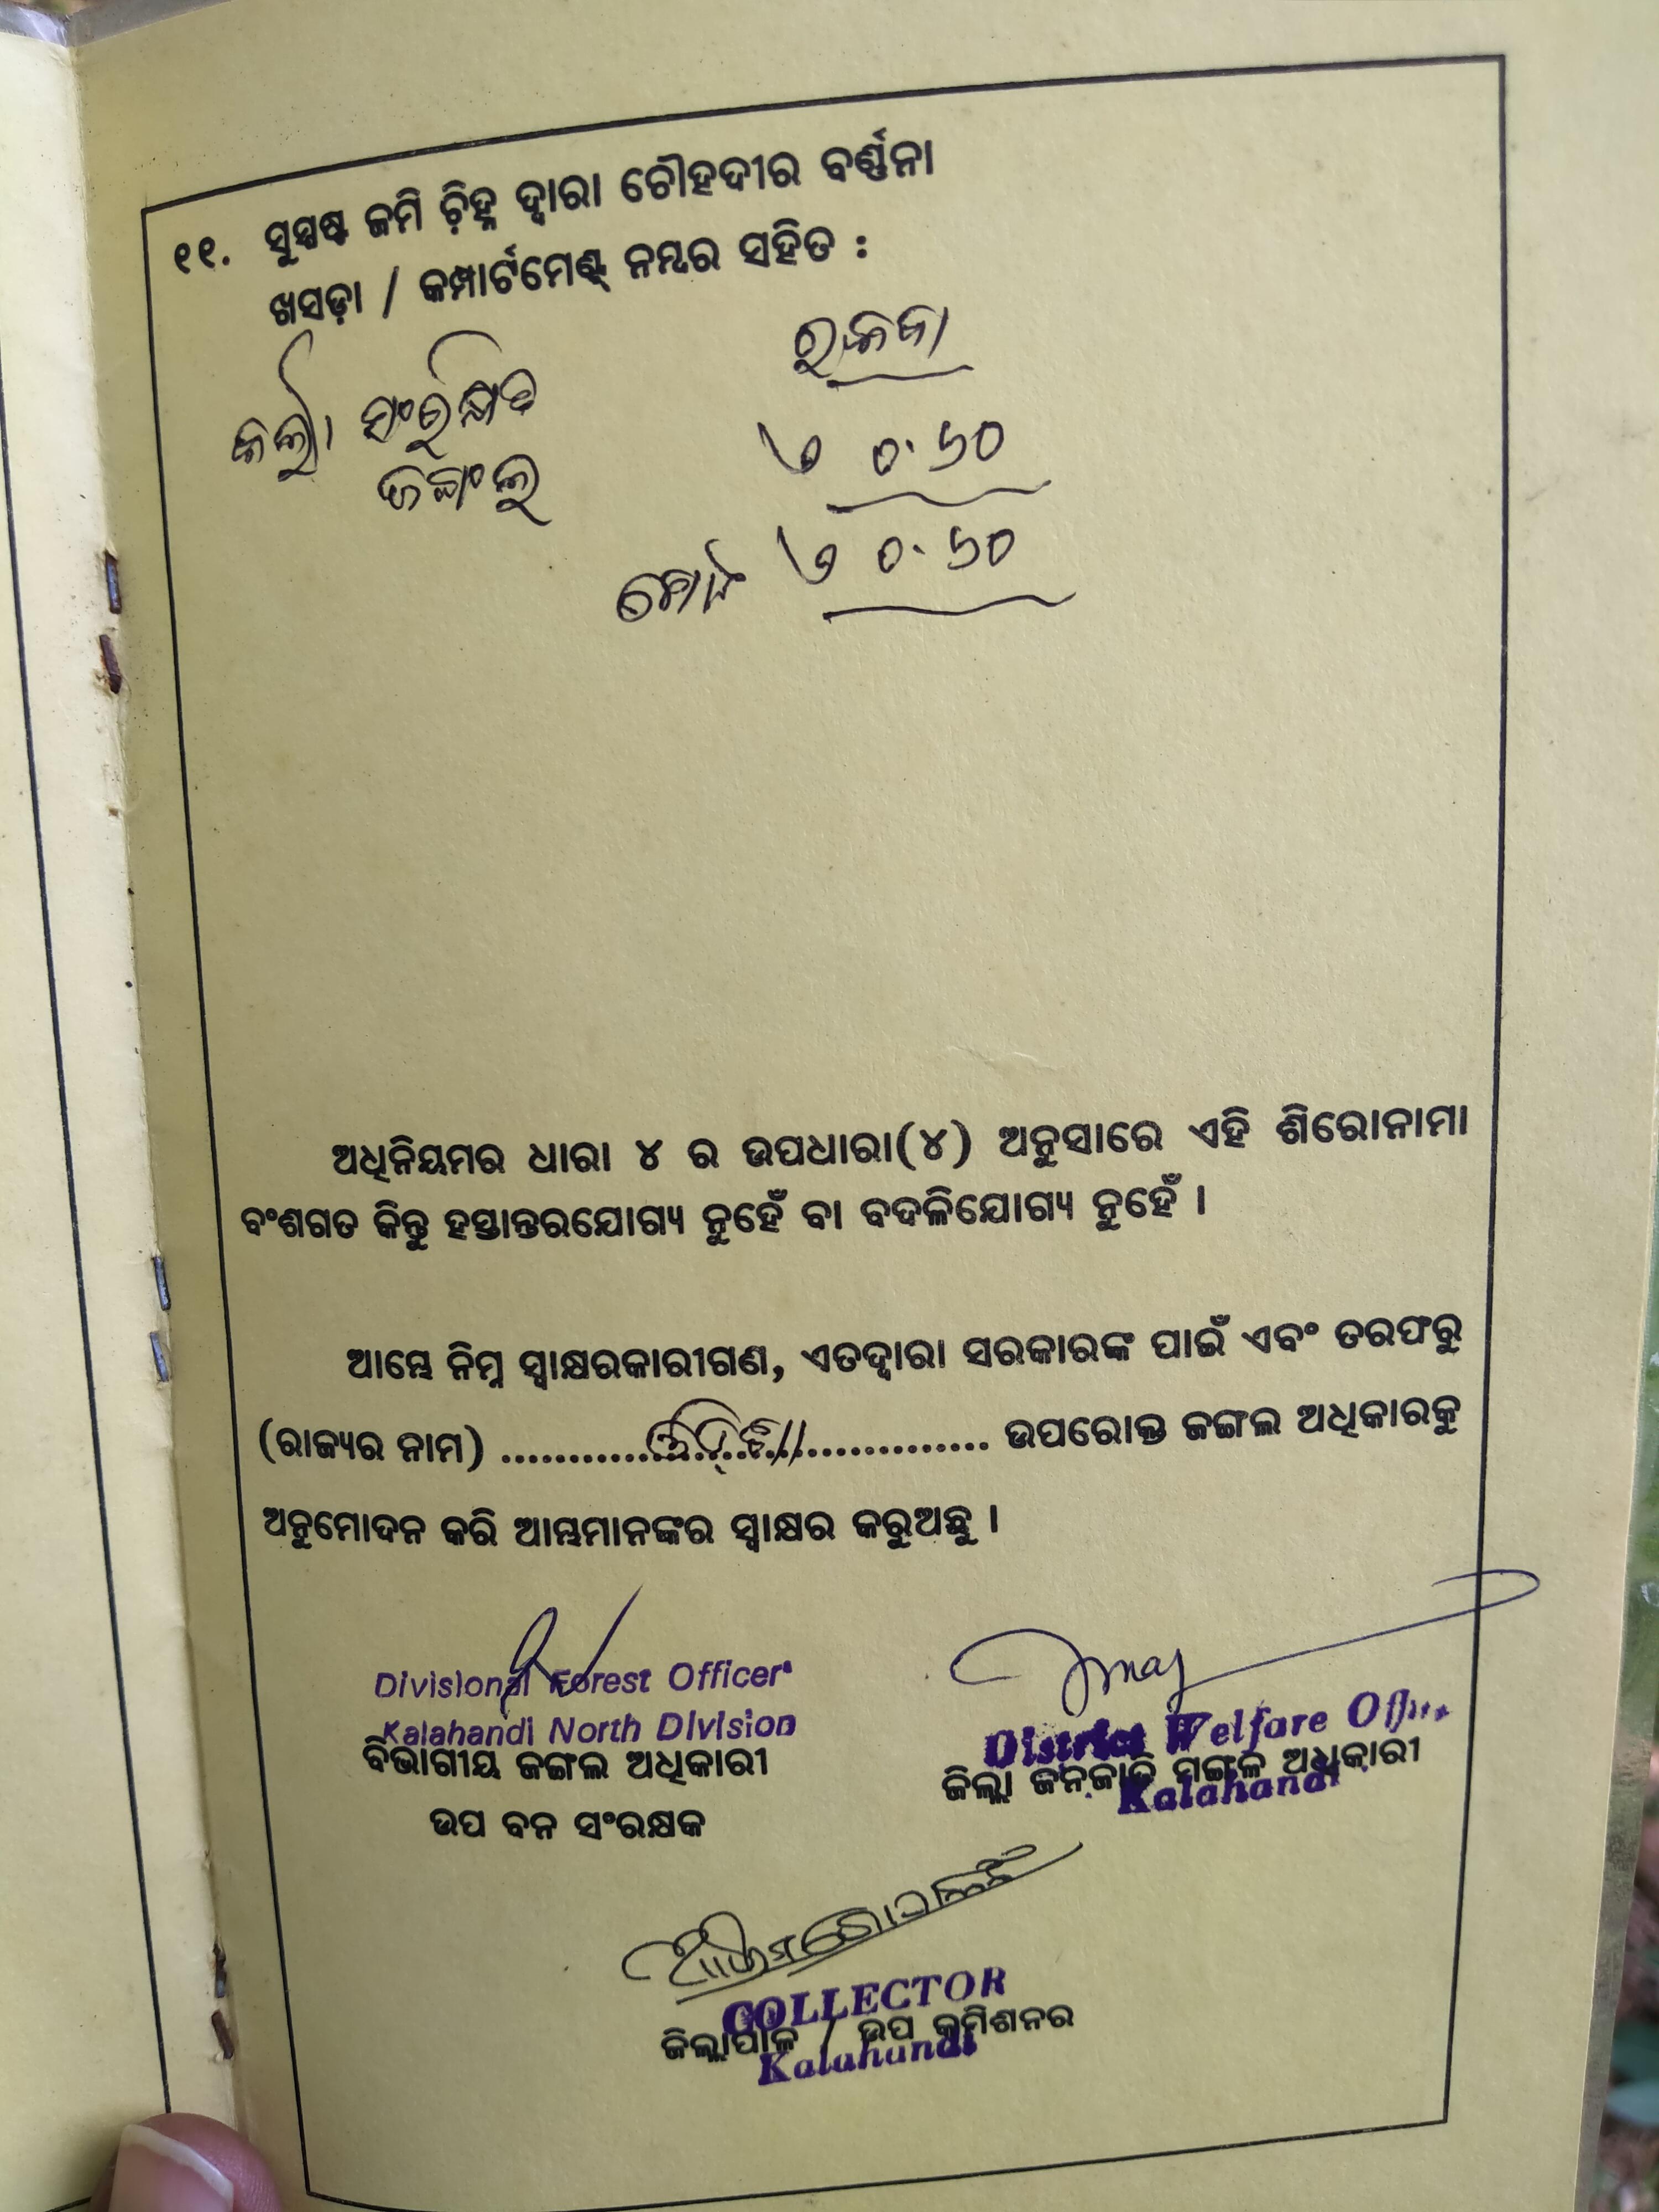 ୧୧. ସୁସ୍ପଷ୍ଟ ଜମି ଚ଼ିହ୍ନ ଦ୍ୱାରା ଚୌହଦୀର ବର୍ଣ୍ଣନା
ଖସଡ଼ା / କମ୍ପାର୍ଟମେଣ୍ଟ୍ ନମ୍ବର ସହିତ :
ରକବା
ସଂରକ୍ଷିତ
୦.୬୦
ଜଙ୍ଗଲ
ମୋଟ ୦.୬୦
ଅଧିନିୟମର ଧାରା ୪ ର ଉପଧାରା(୪) ଅନୁସାରେ ଏହି ଶିରୋନାମା
ବଂଶଗତ କିନ୍ତୁ ହସ୍ତାନ୍ତରଯୋଗ୍ୟ ନୁହେଁ ବା ବଦଳିଯୋଗ୍ୟ ନୁହେଁ ।
ଆମ୍ଭେ ନିମ୍ନ ସ୍ୱାକ୍ଷରକାରୀଗଣ, ଏତଦ୍ୱାରା ସରକାରଙ୍କ ପାଇଁ ଏବଂ ତରଫରୁ
(ରାଜ୍ୟର ନାମ) .......... ଓଡ଼ିଶା .......... ଉପରୋକ୍ତ ଜଙ୍ଗଲ ଅଧିକାରକୁ
ଅନୁମୋଦନ କରି ଆମ୍ଭମାନଙ୍କର ସ୍ୱାକ୍ଷର କରୁଅଛୁ ।
Divisional Forest Officer
Kalahandi North Division
ବିଭାଗୀୟ ଜଙ୍ଗଲ ଅଧିକାରୀ
ଉପ ବନ ସଂରକ୍ଷକ
District Welfare Officer
ଜିଲ୍ଲା ଜନଜାତି ମଙ୍ଗଳ ଅଧିକାରୀ
Kalahandi
COLLECTOR
ଜିଲ୍ଲାପାଳ / ଉପ କମିଶନର
Kalahandi